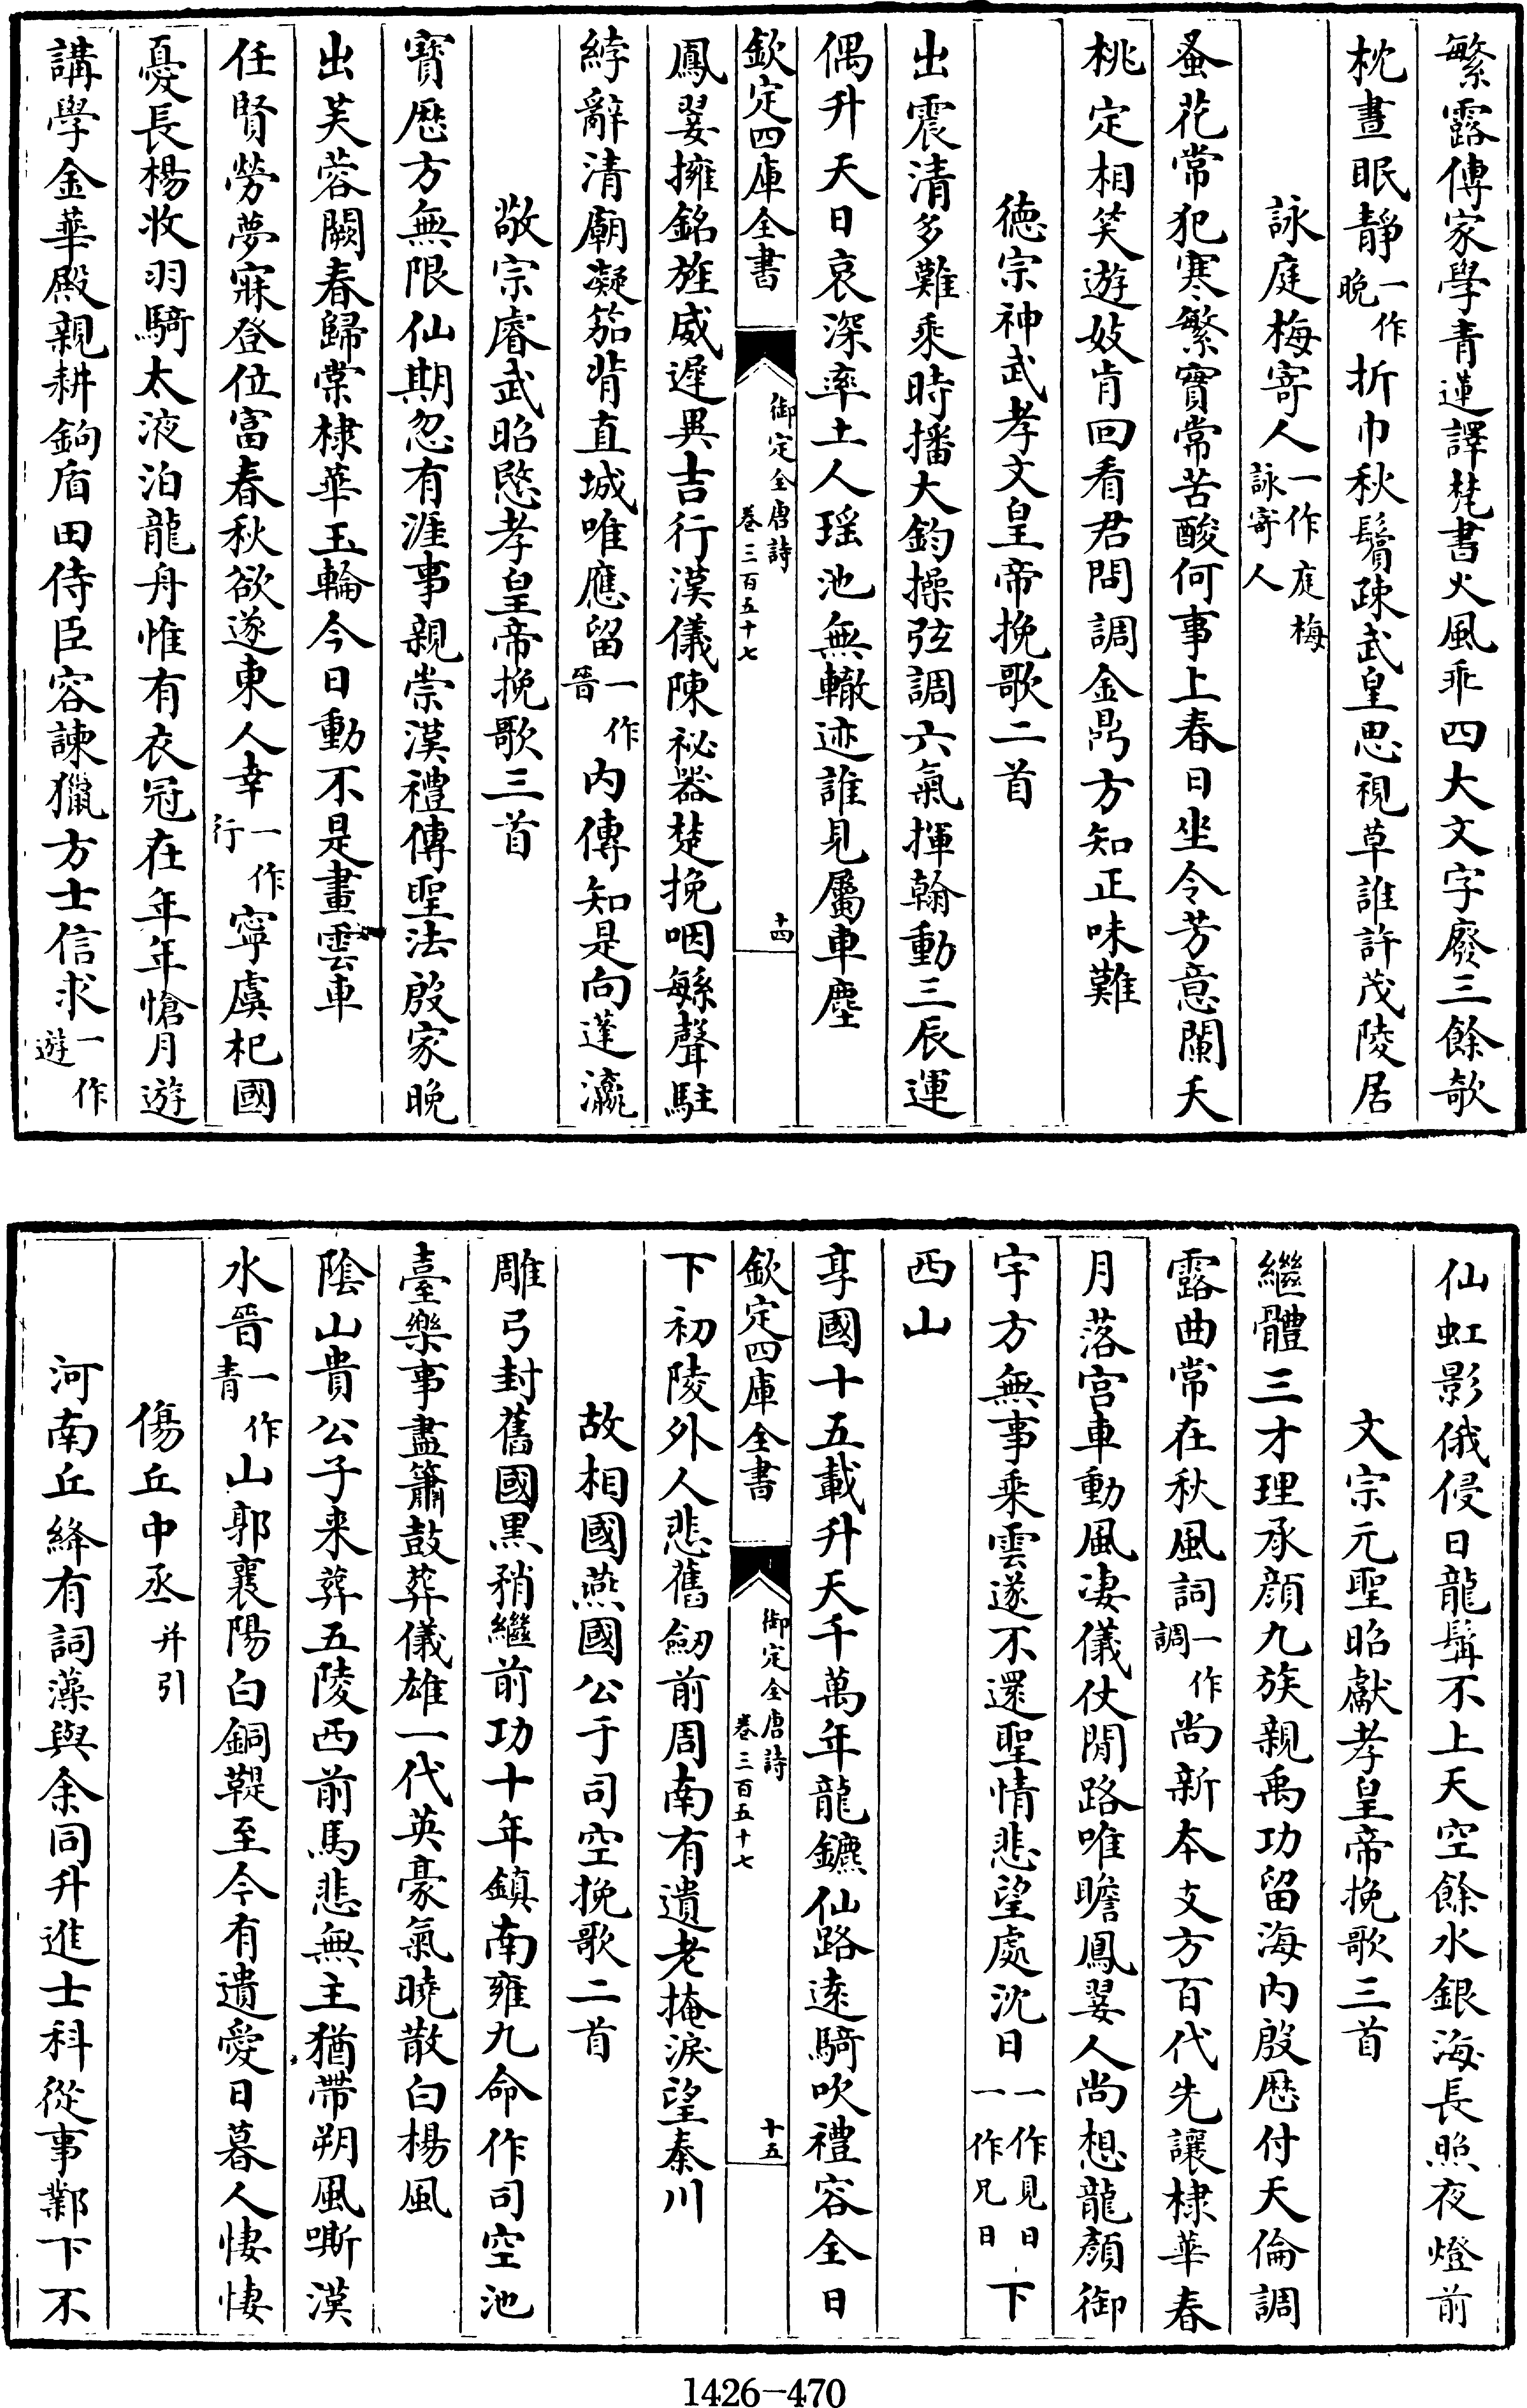 繁露傳家學青蓮譯梵書火風乖四大文字廢三餘欹
枕晝眠靜一作晚折巾秋鬢疎武皇思視草誰許茂陵居
詠庭梅寄人一作庭梅詠寄人
蚤花常犯寒繁實常苦酸何事上春日坐令芳意闌夭
桃定相笑遊妓肯回看君問調金鼎方知正味難
德宗神武孝文皇帝挽歌二首
出震清多難乘時播大鈞操弦調六氣揮翰動三辰運
偶升天日哀深率土人瑶池無轍迹誰見屬車塵
欽定四庫全書 御定全唐詩卷三百五十七 十四
鳳翣擁銘旌威遲異吉行漢儀陳祕器楚挽咽繇聲駐
綍辭清廟凝笳背直城唯應留一作晉内傳知是向蓬瀛
敬宗睿武昭愍孝皇帝挽歌三首
寳歷方無限仙期忽有涯事親崇漢禮傳聖法殷家晚
出芙蓉闕春歸棠棣華玉輪今日動不是畫雲車
任賢勞夢寐登位富春秋欲遂東人幸一作行寧虞杞國
憂長楊收羽騎太液泊龍舟惟有衣冠在年年愴月遊
講學金華殿親耕鉤盾田侍臣容諫獵方士信求一作遊
仙虹影俄侵日龍髯不上天空餘水銀海長照夜燈前
文宗元聖昭獻孝皇帝挽歌三首
繼體三才理承顔九族親禹功留海内殷歷付天倫調
露曲常在秋風詞一作調尚新本支方百代先讓棣華春
月落宫車動風凄儀仗閒路唯瞻鳳翣人尚想龍顔御
宇方無事乘雲遂不還聖情悲望處沈日一作見日一作兄日下
西山
享國十五載升天千萬年龍鑣仙路逺騎吹禮容全日
欽定四庫全書 御定全唐詩卷三百五十七 十五
下初陵外人悲舊劒前周南有遺老掩淚望秦川
故相國燕國公于司空挽歌二首
雕弓封舊國黑矟繼前功十年鎮南雍九命作司空池
臺樂事盡簫鼓葬儀雄一代英豪氣曉散白楊風
隂山貴公子来葬五陵西前馬悲無主猶帶朔風嘶漢
水晉一作青山郭襄陽白銅鞮至今有遺愛日暮人悽悽
傷丘中丞并引
河南丘絳有詞藻與余同升進士科從事鄴下不
1426-470